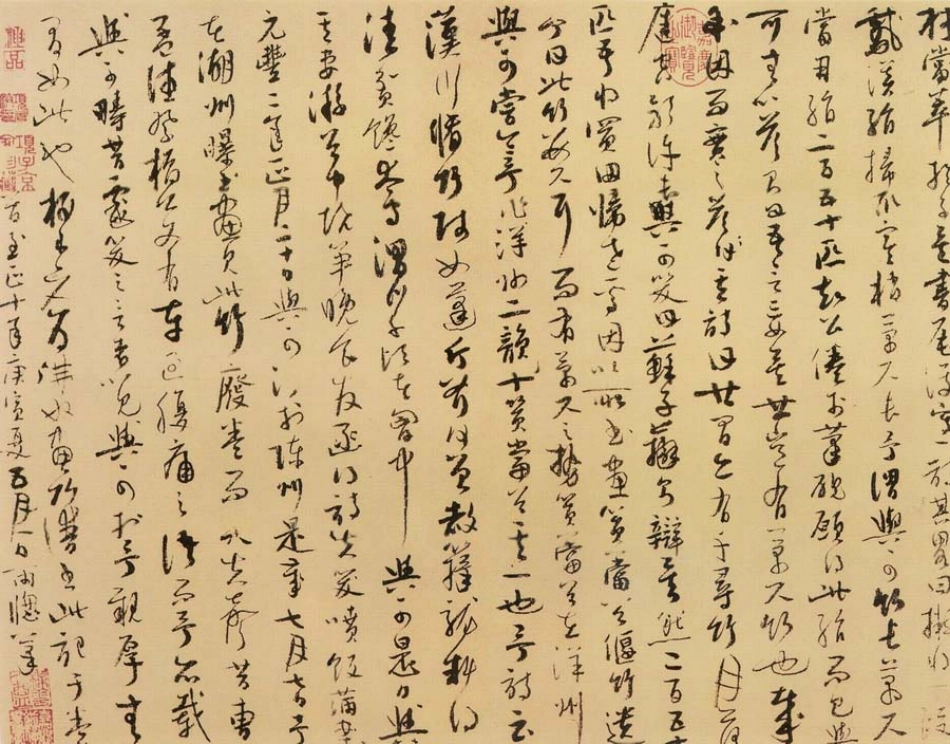 材當萃於子矣書尾復寫一詩其略曰擬將一段
鵝溪絹掃取寒梢萬尺長予謂與可竹長萬尺
當用絹二百五十匹知公倦於筆硯願得此絹而已與
可無以答則曰吾言妄矣世豈有萬尺竹也哉
余因而實之答其詩曰世間亦有千尋竹月落
庭空影許長與可笑曰蘇子辯則辯矣然二百五十
匹吾將買田歸老焉因以所畫篔簹谷偃竹遺
予曰此竹數尺耳而有萬尺之勢篔簹谷在洋州
與可嘗令予作洋州二韻十篔簹谷其一也予詩云
漢川脩竹賤如蓬斤斧何曾赦籜龍料得
清貧饞太守渭川千畝在胸中與可是日與
其妻游谷中燒筍晚食發函得詩失笑噴飯滿案
元豐二年正月二十日與可沒於陳州是歲七月七日予
在湖州曝書畫見此竹廢卷而哭失聲昔曹
孟德祭橋公文有車過腹痛之語而予亦載
與可疇昔戲笑之言者以見與可於予親厚無
間如此也 為 畫竹 書此記于卷
首至正十年庚寅夏五月一日雨窓筆